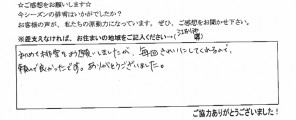 ☆ご感想をお願いします☆
今シーズンの排雪はいかがでしたか？
お客様の声が、私たちの原動力になっています。ぜひ、ご感想をお聞かせ下さい。
※差支えなければ、お住まいの地域をご記入ください→（江別 ）
初めて排雪をお願いしましたが、毎回きれいにしてくれるので、
頼んで良かったです。ありがとうございました。
ご協力ありがとうございました！